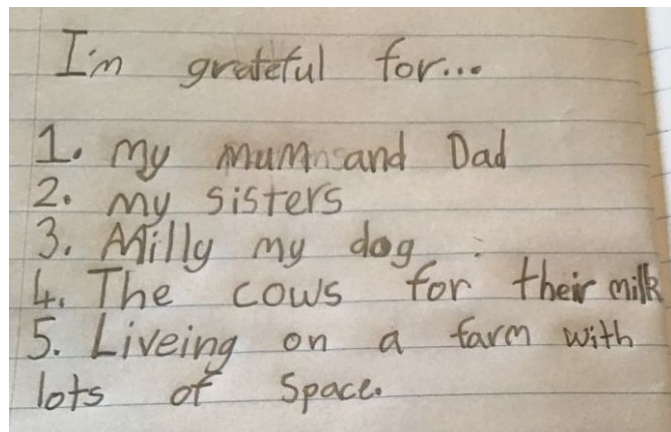 I'm grateful for...
1. my mum and Dad
2. my sisters
3. Milly my dog
4. The cows for their milk
5. Liveing on a farm with
lots of Space.